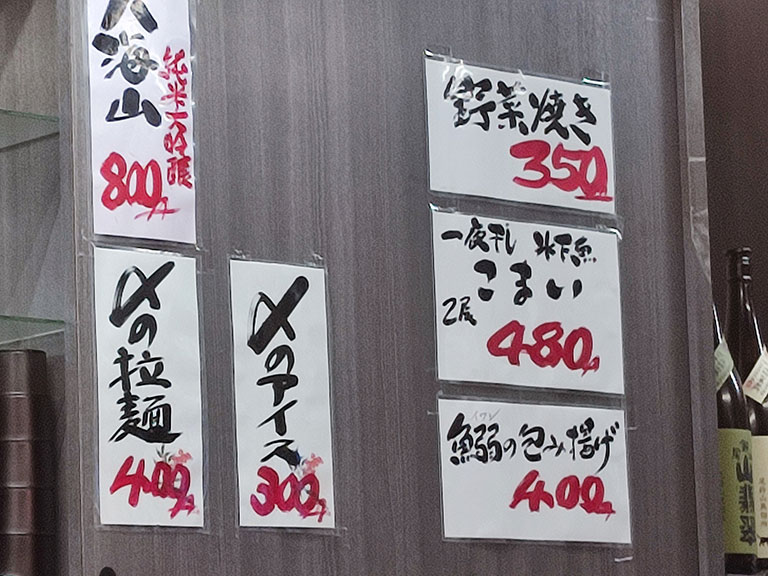 八海山
純米大吟醸
800円
〆の拉麺
400円
〆のアイス
300円
野菜焼き
350円
一夜干し 氷下魚
こまい
2尾
480円
イワシ
鰯の包み揚げ
400円